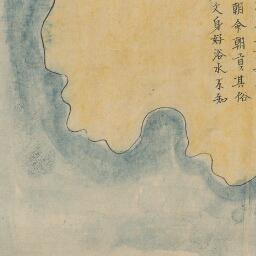 朝命朝貢其俗
文身好浴水不知